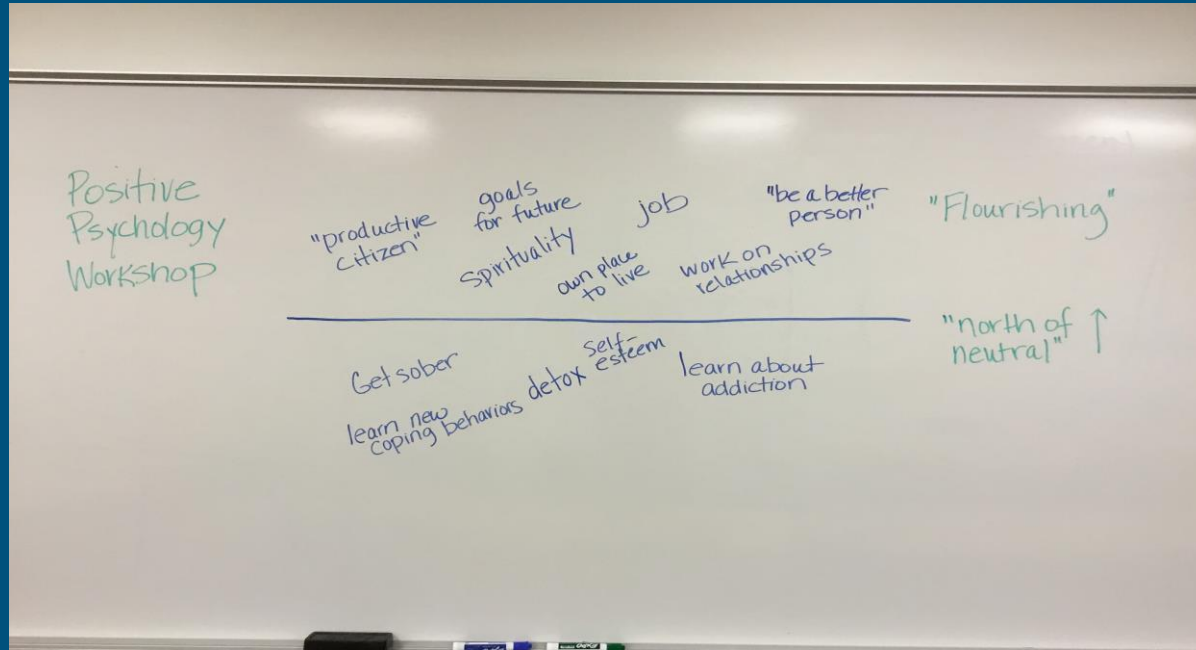 Positive
Psychology
Workshop
"productive
citizen"
goals
for future
Spirituality
job
own place
to live
"be a better
person"
work on
relationships
"Flourishing"
"north of ↑
neutral"
Get sober
learn new
coping behaviors
detox
self-
esteem
learn about
addiction